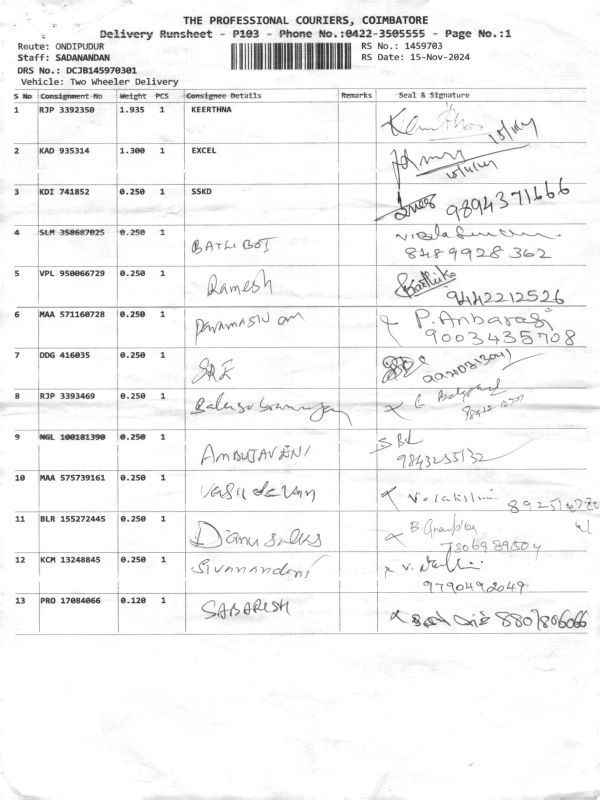 THE PROFESSIONAL COURIERS, COIMBATORE
Delivery Runsheet - P103 - Phone No.:0422-3505555 - Page No.:1
Route: ONDIPUDUR RS No.: 1459703
Staff: SADANANDAN RS Date: 15-Nov-2024
DRS No.: DCJB145970301
Vehicle: Two Wheeler Delivery
S No Consignment No Weight PCS Consignee Details Remarks Seal & Signature
1 RJP 3392350 1.935 1 KEERTHNA
2 KAD 935314 1.300 1 EXCEL
3 KDI 741852 0.250 1 SSKD 9894371666
4 SLM 358687025 0.250 1 BATLIBOI
8489928362
5 VPL 950066729 0.250 1 Ramesh
9442212526
6 MAA 571160728 0.250 1 PARAMASIVAM P. Anbarasi
9003435708
7 DDG 416035 0.250 1 SRI
8 RJP 3393469 0.250 1 Balasubramaniyan
9 NGL 100181390 0.250 1 AMBUJAVENI
9843255132
10 MAA 575739161 0.250 1 Vasudevan
11 BLR 155272445 0.250 1
12 KCM 13248845 0.250 1 Sivanandani
9790492049
13 PRO 17084066 0.120 1 SABARESH 8807806066